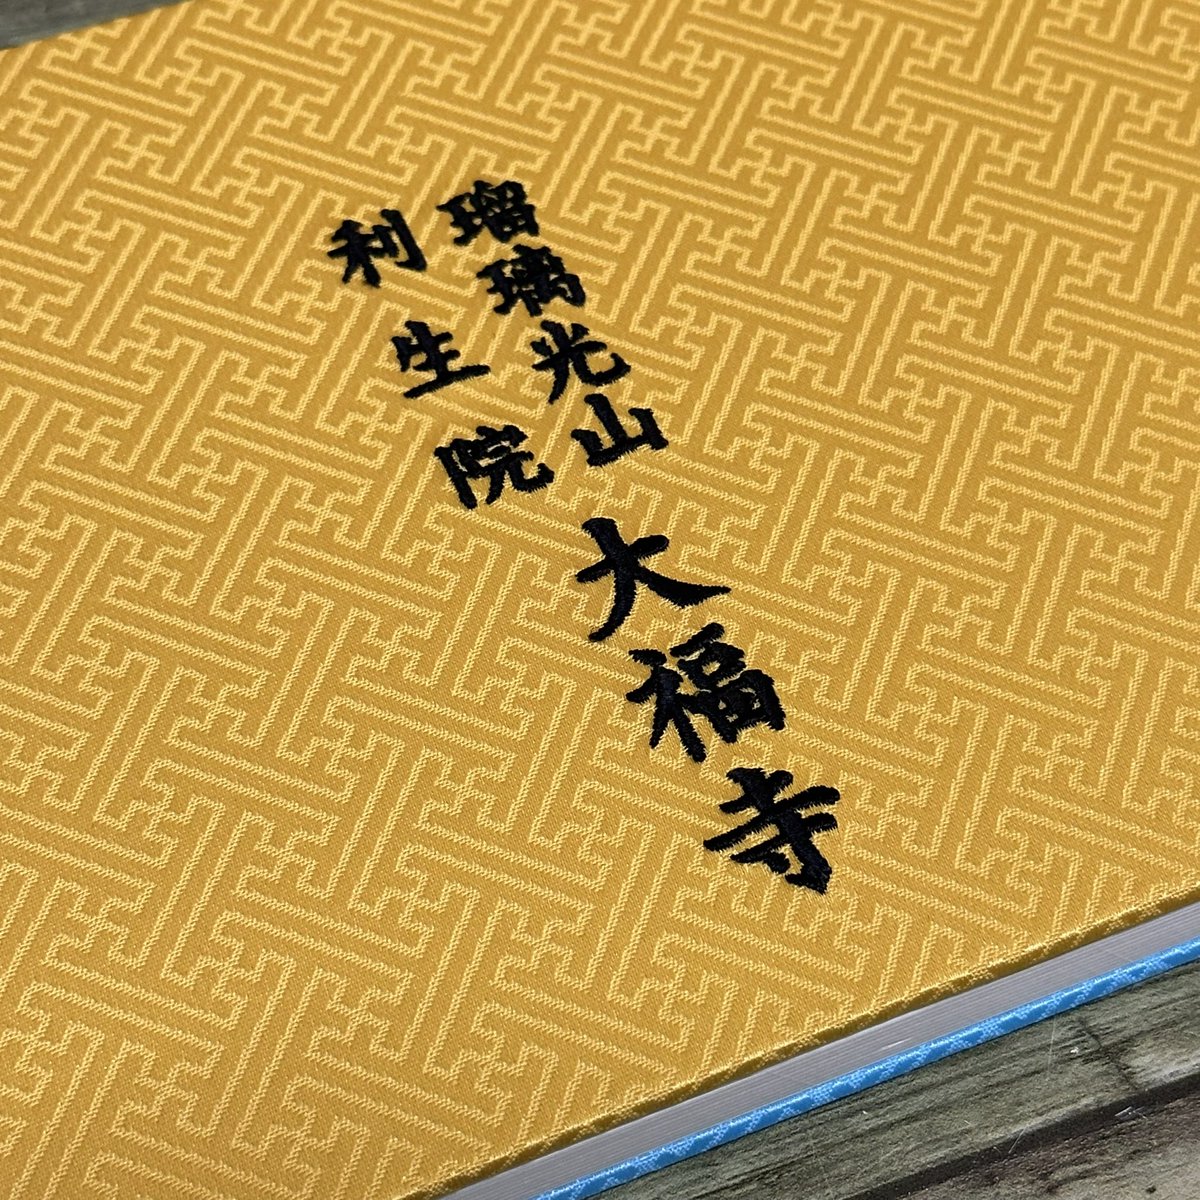 瑠璃光山
利生院
大福寺